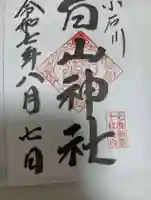 小石川
白山神社
令和七年八月七日